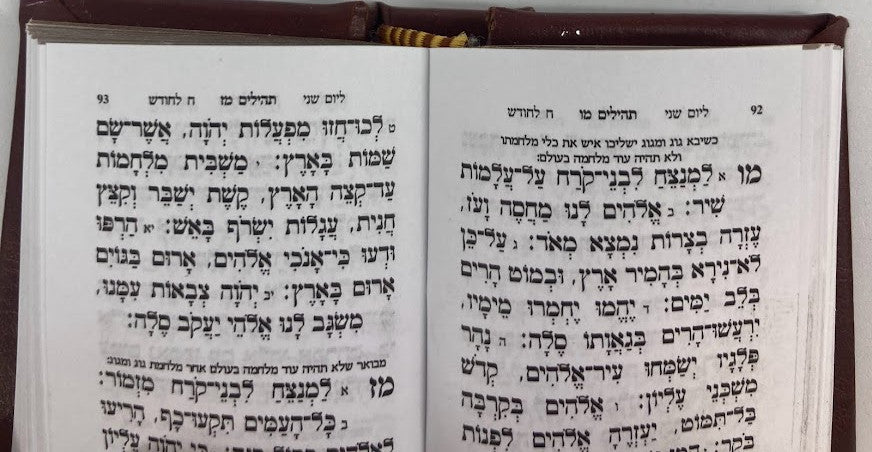 92 ליום שני תהילים מו ח לחודש
כשיבא גוג ומגוג ישליכו איש את כלי מלחמתו
ולא תהיה עוד מלחמה בעולם:
מו א לַמְנַצֵּחַ לִבְנֵי־קֹרַח עַל־עֲלָמוֹת
שִׁיר: ב אֱלֹהִים לָנוּ מַחֲסֶה וָעֹז,
עֶזְרָה בְצָרוֹת נִמְצָא מְאֹד: ג עַל־כֵּן
לֹא־נִירָא בְּהָמִיר אָרֶץ, וּבְמוֹט הָרִים
בְּלֵב יַמִּים: ד יֶהֱמוּ יֶחְמְרוּ מֵימָיו,
יִרְעֲשׁוּ־הָרִים בְּגַאֲוָתוֹ סֶלָה: ה נָהָר
פְּלָגָיו יְשַׂמְּחוּ עִיר־אֱלֹהִים, קְדֹשׁ
מִשְׁכְּנֵי עֶלְיוֹן: ו אֱלֹהִים בְּקִרְבָּהּ
בַּל־תִּמּוֹט, יַעְזְרֶהָ אֱלֹהִים לִפְנוֹת
בֹּקֶר:
ליום שני תהילים מז ח לחודש 93
ט לְכוּ־חֲזוּ מִפְעֲלוֹת יְהֹוָה, אֲשֶׁר־שָׂם
שַׁמּוֹת בָּאָרֶץ: י מַשְׁבִּית מִלְחָמוֹת
עַד־קְצֵה הָאָרֶץ, קֶשֶׁת יְשַׁבֵּר וְקִצֵּץ
חֲנִית, עֲגָלוֹת יִשְׂרֹף בָּאֵשׁ: יא הַרְפּוּ
וּדְעוּ כִּי־אָנֹכִי אֱלֹהִים, אָרוּם בַּגּוֹיִם
אָרוּם בָּאָרֶץ: יב יְהֹוָה צְבָאוֹת עִמָּנוּ,
מִשְׂגָּב לָנוּ אֱלֹהֵי יַעֲקֹב סֶלָה:
מבואר שלא תהיה עוד מלחמה בעולם אחר מלחמת גוג ומגוג:
מז א לַמְנַצֵּחַ לִבְנֵי־קֹרַח מִזְמוֹר:
ב כָּל־הָעַמִּים תִּקְעוּ־כָף, הָרִיעוּ
כִּי יְהֹוָה עֶלְיוֹן